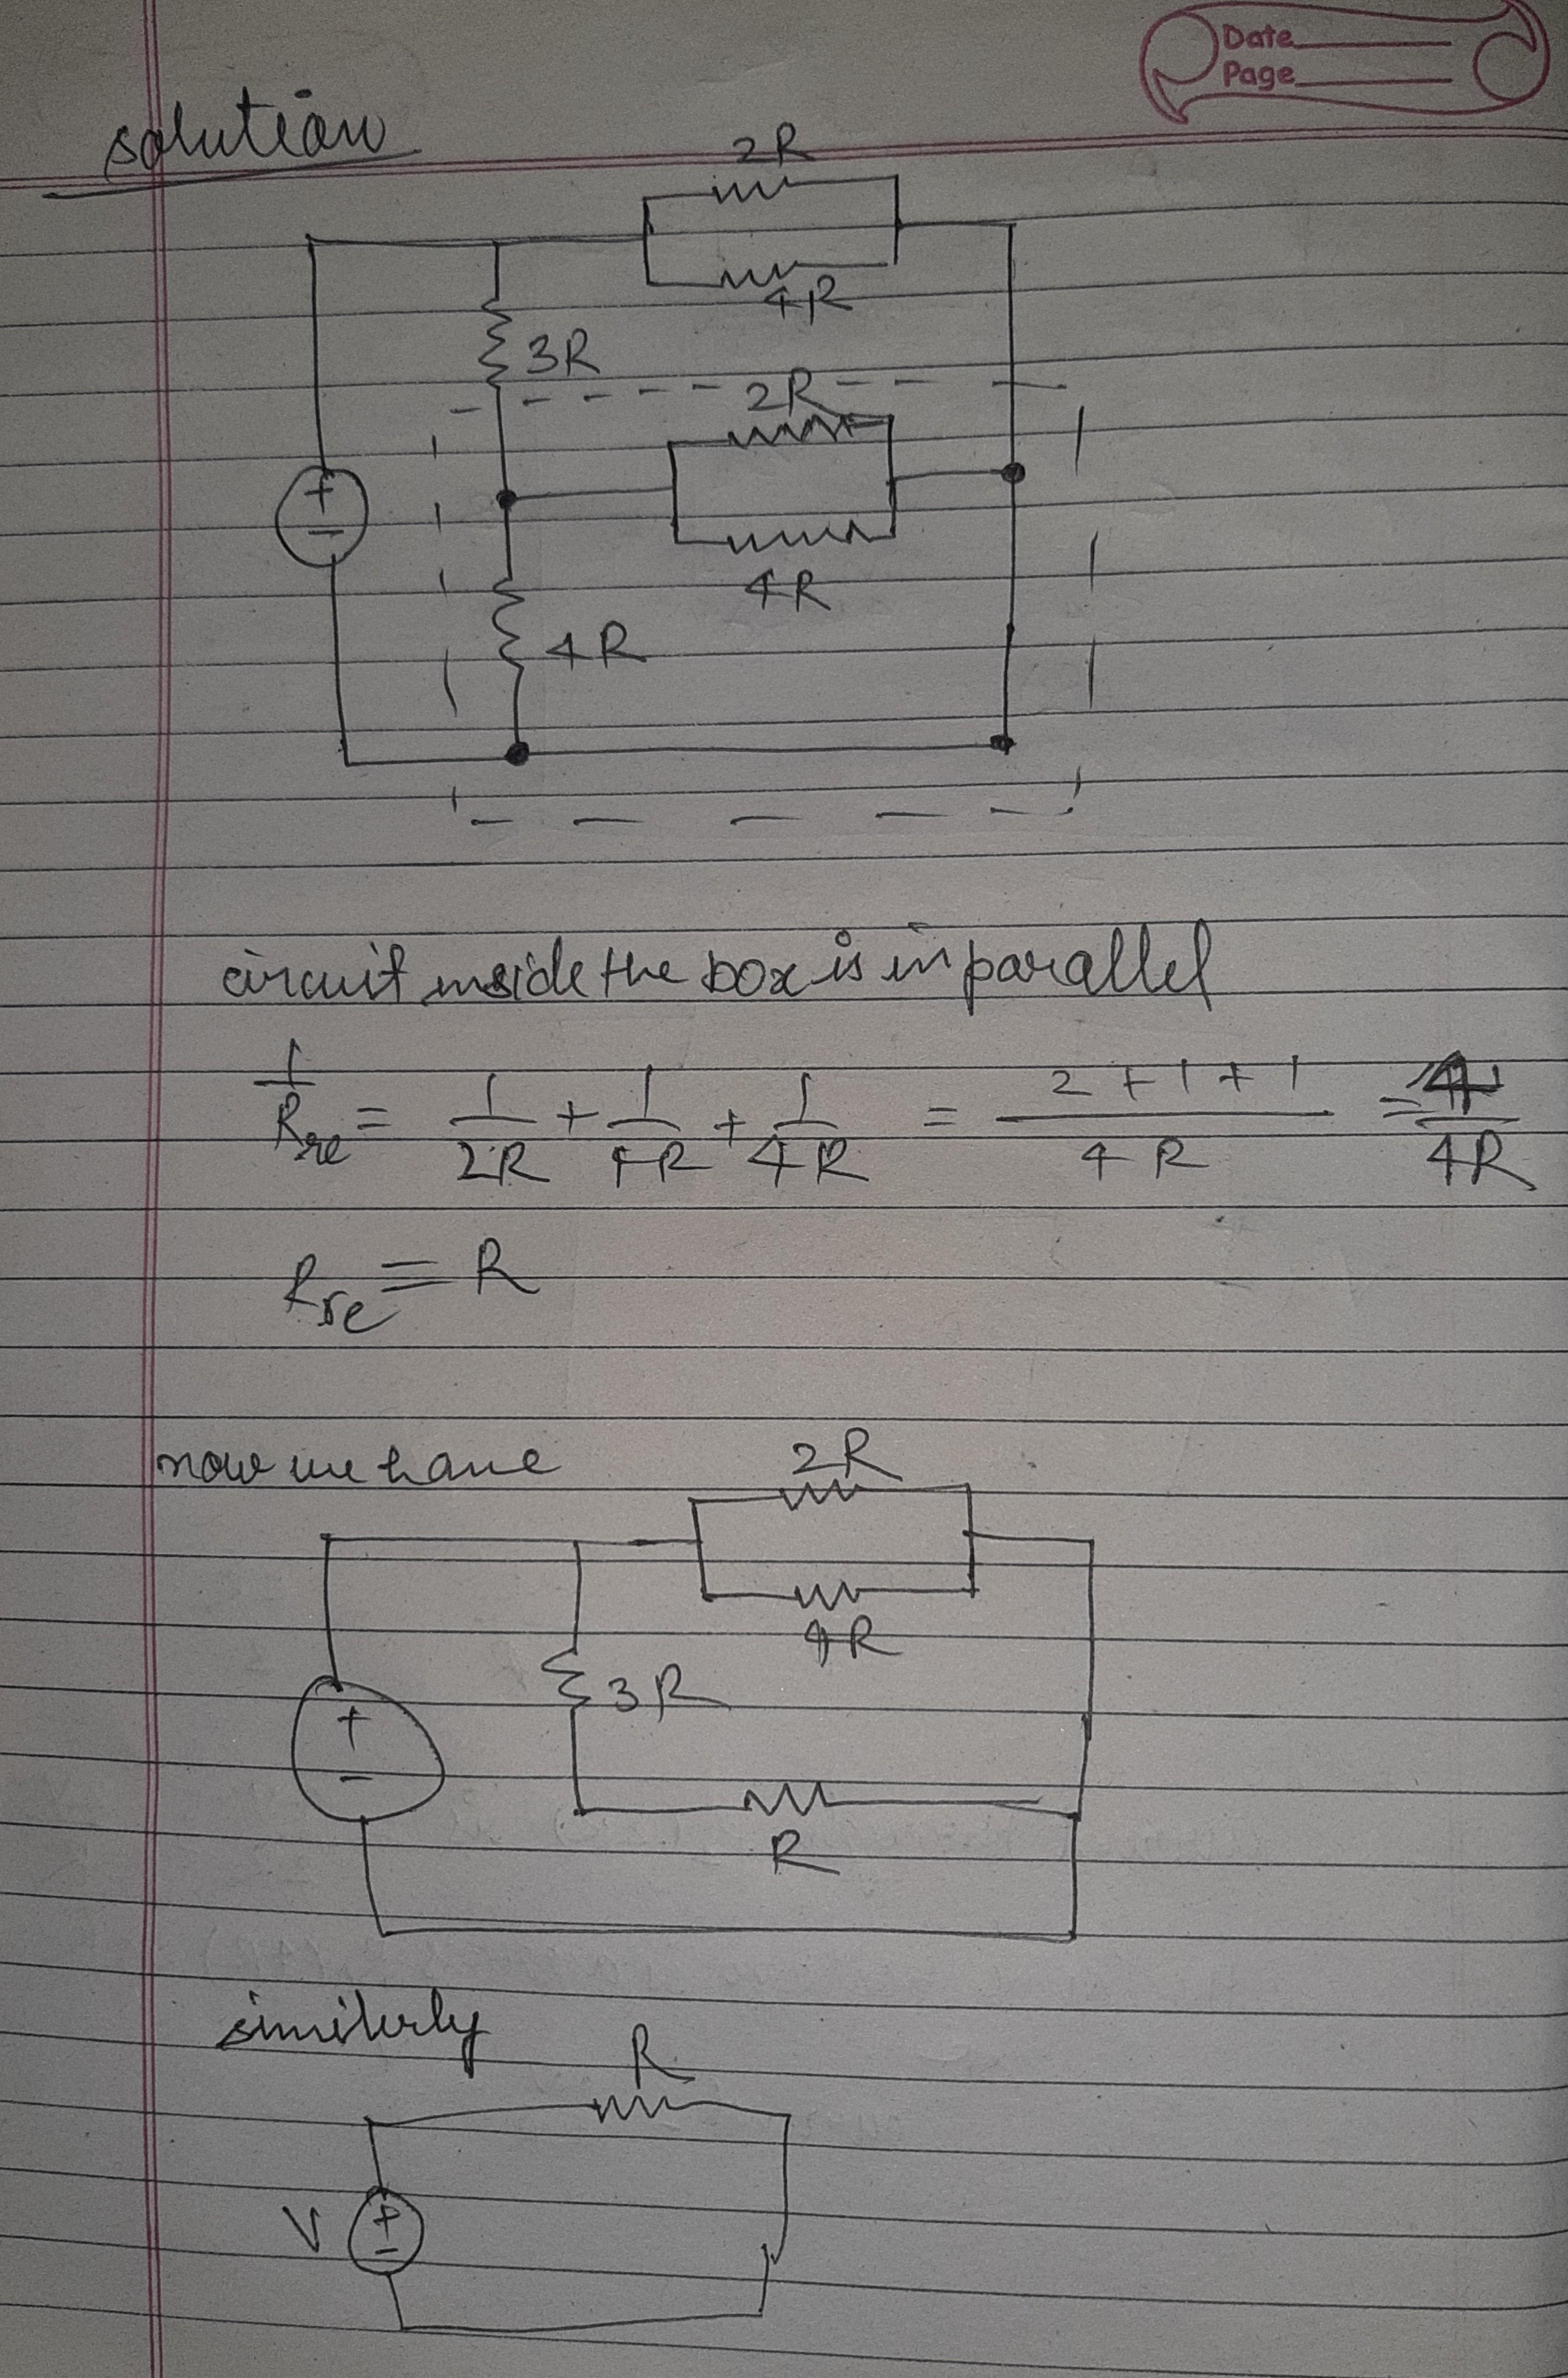 Date
Page
solution
2R
4R
3R
2R
+
−
4R
4R
circuit inside the box is in parallel
1/Rre = 1/2R + 1/4R + 1/4R = 2+1+1/4R = 4/4R
Rre = R
now we have
2R
4R
3R
+
−
R
similerly
R
V
+
−